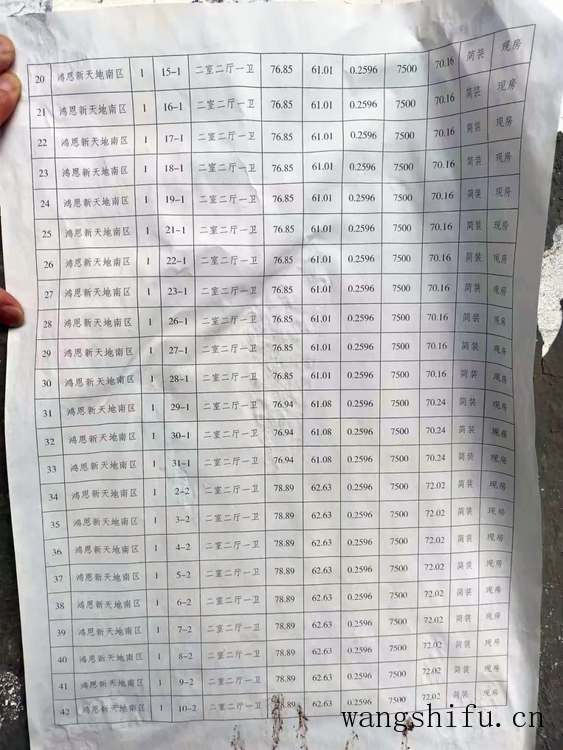 20 鸿恩新天地南区 1 15-1 二室二厅一卫 76.85 61.01 0.2596 7500 70.16 简装 现房
21 鸿恩新天地南区 1 16-1 二室二厅一卫 76.85 61.01 0.2596 7500 70.16 简装 现房
22 鸿恩新天地南区 1 17-1 二室二厅一卫 76.85 61.01 0.2596 7500 70.16 简装 现房
23 鸿恩新天地南区 1 18-1 二室二厅一卫 76.85 61.01 0.2596 7500 70.16 简装 现房
24 鸿恩新天地南区 1 19-1 二室二厅一卫 76.85 61.01 0.2596 7500 70.16 简装 现房
25 鸿恩新天地南区 1 21-1 二室二厅一卫 76.85 61.01 0.2596 7500 70.16 简装 现房
26 鸿恩新天地南区 1 22-1 二室二厅一卫 76.85 61.01 0.2596 7500 70.16 简装 现房
27 鸿恩新天地南区 1 23-1 二室二厅一卫 76.85 61.01 0.2596 7500 70.16 简装 现房
28 鸿恩新天地南区 1 26-1 二室二厅一卫 76.85 61.01 0.2596 7500 70.16 简装 现房
29 鸿恩新天地南区 1 27-1 二室二厅一卫 76.85 61.01 0.2596 7500 70.16 简装 现房
30 鸿恩新天地南区 1 28-1 二室二厅一卫 76.85 61.01 0.2596 7500 70.16 简装 现房
31 鸿恩新天地南区 1 29-1 二室二厅一卫 76.94 61.08 0.2596 7500 70.24 简装 现房
32 鸿恩新天地南区 1 30-1 二室二厅一卫 76.94 61.08 0.2596 7500 70.24 简装 现房
33 鸿恩新天地南区 1 31-1 二室二厅一卫 76.94 61.08 0.2596 7500 70.24 简装 现房
34 鸿恩新天地南区 1 2-2 二室二厅一卫 78.89 62.63 0.2596 7500 72.02 简装 现房
35 鸿恩新天地南区 1 3-2 二室二厅一卫 78.89 62.63 0.2596 7500 72.02 简装 现房
36 鸿恩新天地南区 1 4-2 二室二厅一卫 78.89 62.63 0.2596 7500 72.02 简装 现房
37 鸿恩新天地南区 1 5-2 二室二厅一卫 78.89 62.63 0.2596 7500 72.02 简装 现房
38 鸿恩新天地南区 1 6-2 二室二厅一卫 78.89 62.63 0.2596 7500 72.02 简装 现房
39 鸿恩新天地南区 1 7-2 二室二厅一卫 78.89 62.63 0.2596 7500 72.02 简装 现房
40 鸿恩新天地南区 1 8-2 二室二厅一卫 78.89 62.63 0.2596 7500 72.02 简装 现房
41 鸿恩新天地南区 1 9-2 二室二厅一卫 78.89 62.63 0.2596 7500 72.02 简装 现房
42 鸿恩新天地南区 1 10-2 二室二厅一卫 78.89 62.63 0.2596 7500 72.02 简装 现房
wangshifu.cn